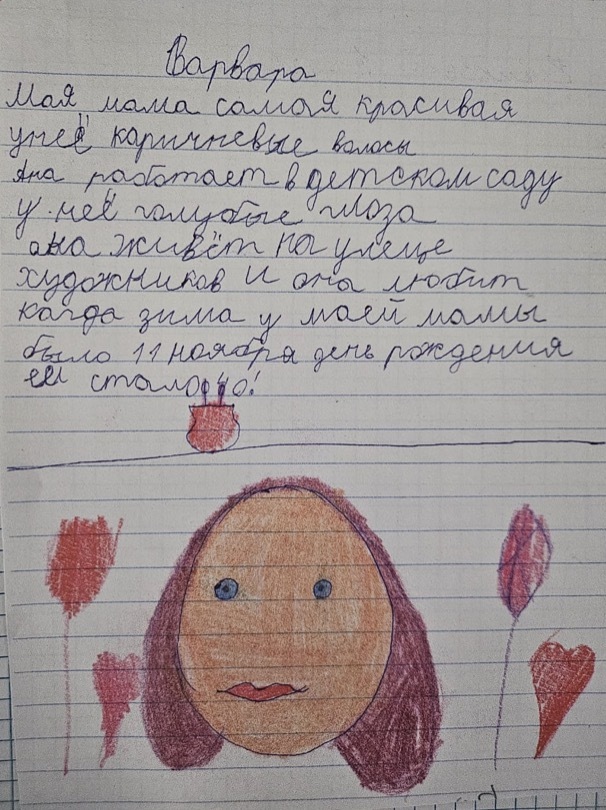 Варвара
Мая мама самая красивая
унеё каричневые волосы
Ана работает в детском саду
у неё голубые глоза
она живёт на улеце
художников и она любит
кагда зима у моей мамы
было 11 ноября день рождения
ей стало